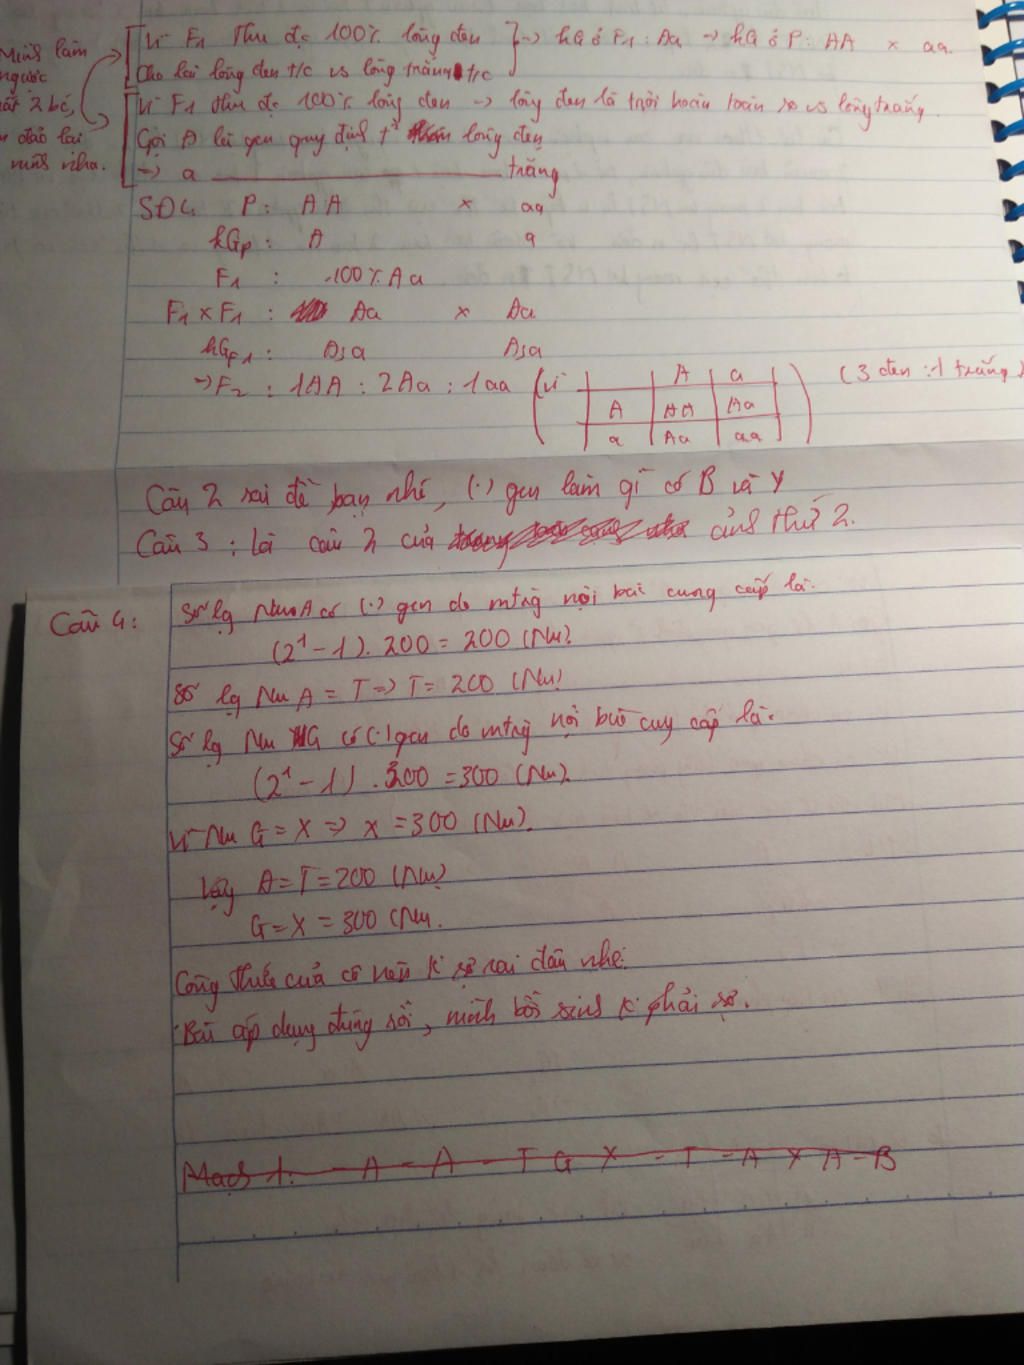 Mình làm
ngược
mất 2 bước,
đảo lại
mình nha.
Vì F1 thu đc 100% lông đen
Cho lai lông đen t/c vs lông trắng t/c
→ KG ở F1 : Aa → KG ở P : AA × aa.
Vì F1 thu đc 100% lông đen → lông đen là trội hoàn toàn so vs lông trắng.
Gọi A là gen quy định t² lông đen
→ a ———— trắng
SĐL P : AA × aa
KGP : A a
F1 : 100% Aa
F1 × F1 : Aa × Aa
KGF1 : A;a A;a
→ F2 : 1AA : 2Aa : 1aa (Vì (3 đen : 1 trắng)
A a
A AA Aa
a Aa aa )
Câu 2 sai đề bạn nhé, (.) gen làm gì có B và Y
Câu 3 : là câu 2 của ảnh thứ 2.
Câu 4 : Số lg Nu A có (.) gen do mtrg nội bài cung cấp là:
(2¹ - 1). 200 = 200 (Nu)
Số lg Nu A = T => T = 200 (Nu)
Số lg Nu G có (.) gen do mtrg nội bào cug cấp là:
(2¹ - 1) . 300 = 300 (Nu).
Vì Nu G = X => X = 300 (Nu).
Vậy A = T = 200 (Nu)
G = X = 300 (Nu.
Công thức của cô nên k sợ sai đâu nhé.
Bài áp dụng đúng rồi, mình bồi sinh k phải sợ.
Mạch 1: - A - A - T G X - T - A X A - B